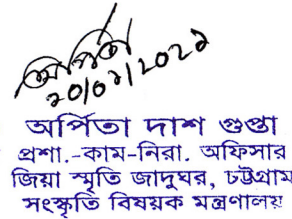 অর্পিতা
২০/০১/২০২১
অর্পিতা দাশ গুপ্তা
প্রশা.-কাম-নিরা. অফিসার
জিয়া স্মৃতি জাদুঘর, চট্টগ্রাম
সংস্কৃতি বিষয়ক মন্ত্রণালয়